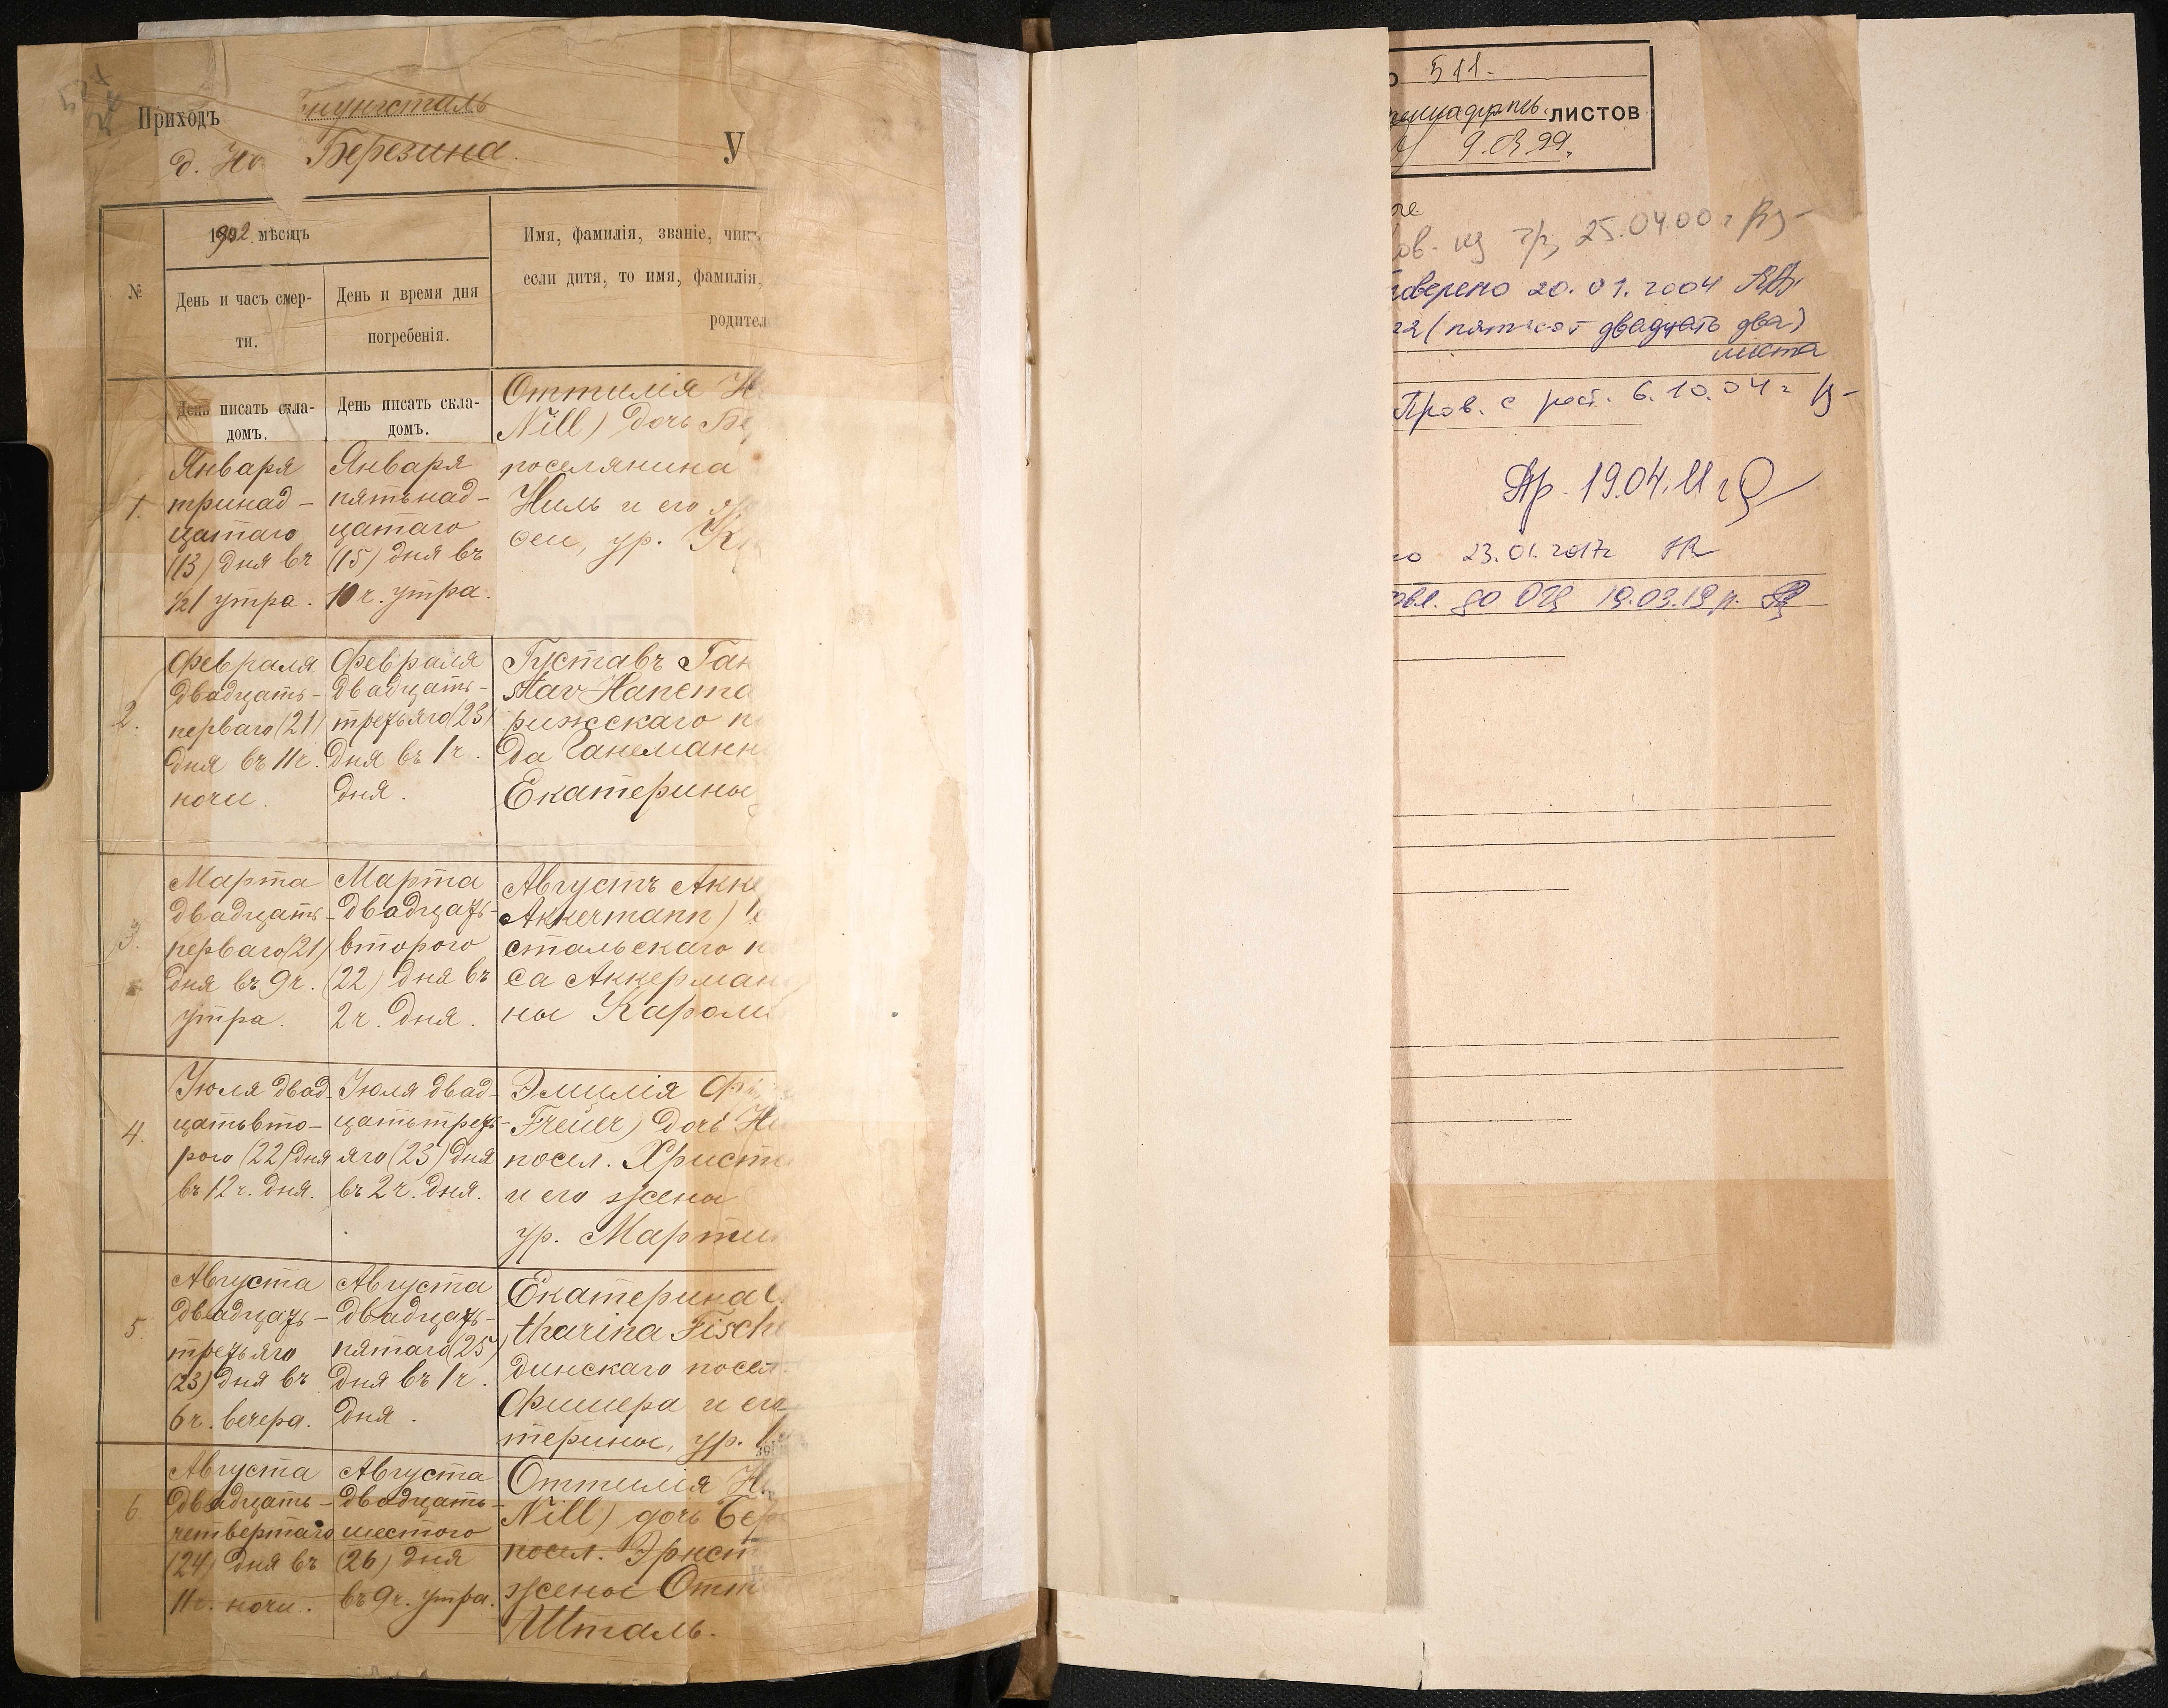 Приходъ
д. Но Березина.
У
№
1902 мѣсяцъ
День и часъ смер-
ти.
День и время дня
погребенія.
Имя, фамилія, званіе, чинъ,
если дитя, то имя, фамилія,
родител
День писать скла-
домъ.
День писать скла-
домъ.
1.
Января
тринад-
цатаго
(13) дня въ
½1 утра.
Января
пятьнад-
цатаго
(15) дня въ
10 ч. утра.
Оттилія
Nill) дочь Бе
поселянина
Ниль и его
ур.
2.
Февраля
двадцать-
перваго (21)
дня въ 11 ч.
ночи.
Февраля
двадцать-
третьяго (23)
дня въ 1 ч.
дня.
Густавъ Ган
stav Hanema
рижскаго п
да Ганеманн
Екатерины
3.
Марта
двадцать-
перваго (21)
дня въ 9 ч.
утра.
Марта
двадцать-
второго
(22) дня въ
2 ч. дня.
Августъ Акке
Akkermann)
стальскаго п
са Аккерман
ны Кароли
4.
Іюля двад-
цатьвто-
рого (22) дня
въ 12 ч. дня.
Іюля двад-
цатьтреть-
яго (23) дня
въ 2 ч. дня.
Эмилія
Freuer) дочь
посел. Христ
и его жены
ур. Марти
5.
Августа
двадцать-
третьяго
(23) дня въ
6 ч. вечера.
Августа
двадцать-
пятаго (25)
дня въ 1 ч.
дня.
Екатерина
tharina Fische
динскаго посел
Фишера и его
терины, ур.
6.
Августа
двадцать-
четвертаго
(24) дня въ
11 ч. ночи.
Августа
двадцать-
шестого
(26) дня
въ 9 ч. утра.
Оттилія
Nill) дочь Бер
посел. Эрнст
жены Отт
Шталь.
511.
ЛИСТОВ
9.03.99.
25.04.00 г
20.01.2004
22 (пятьсот двадцать два)
листа
Пров. с рест. 6.10.04 г
Пр. 19.04.11 г
23.01.2017г
19.03.19 р.